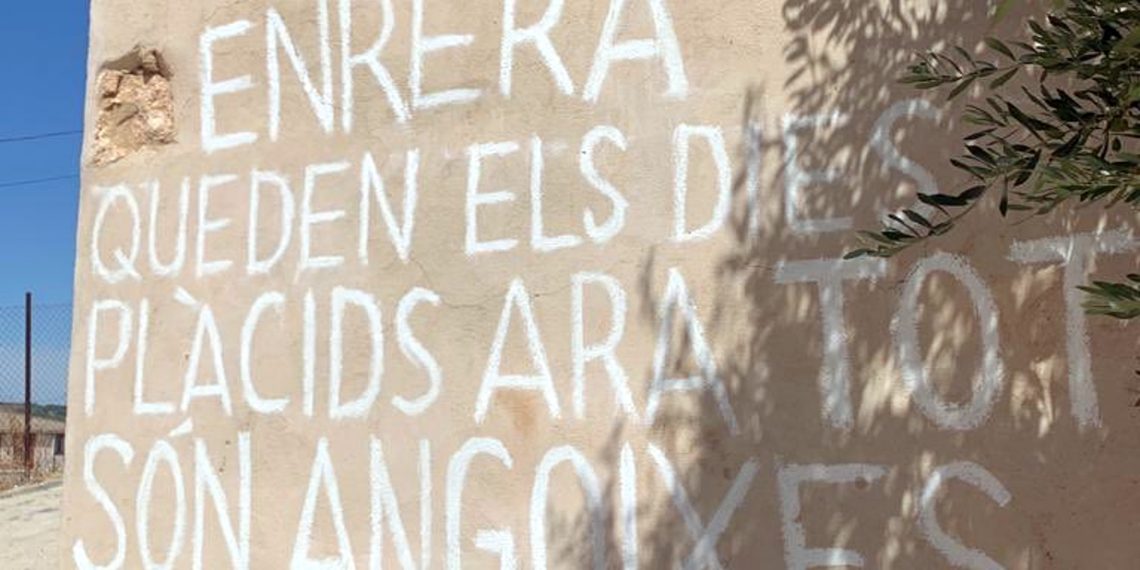 ENRERA
QUEDEN ELS DIES
PLÀCIDS ARA TOT
SÓN ANGOIXES